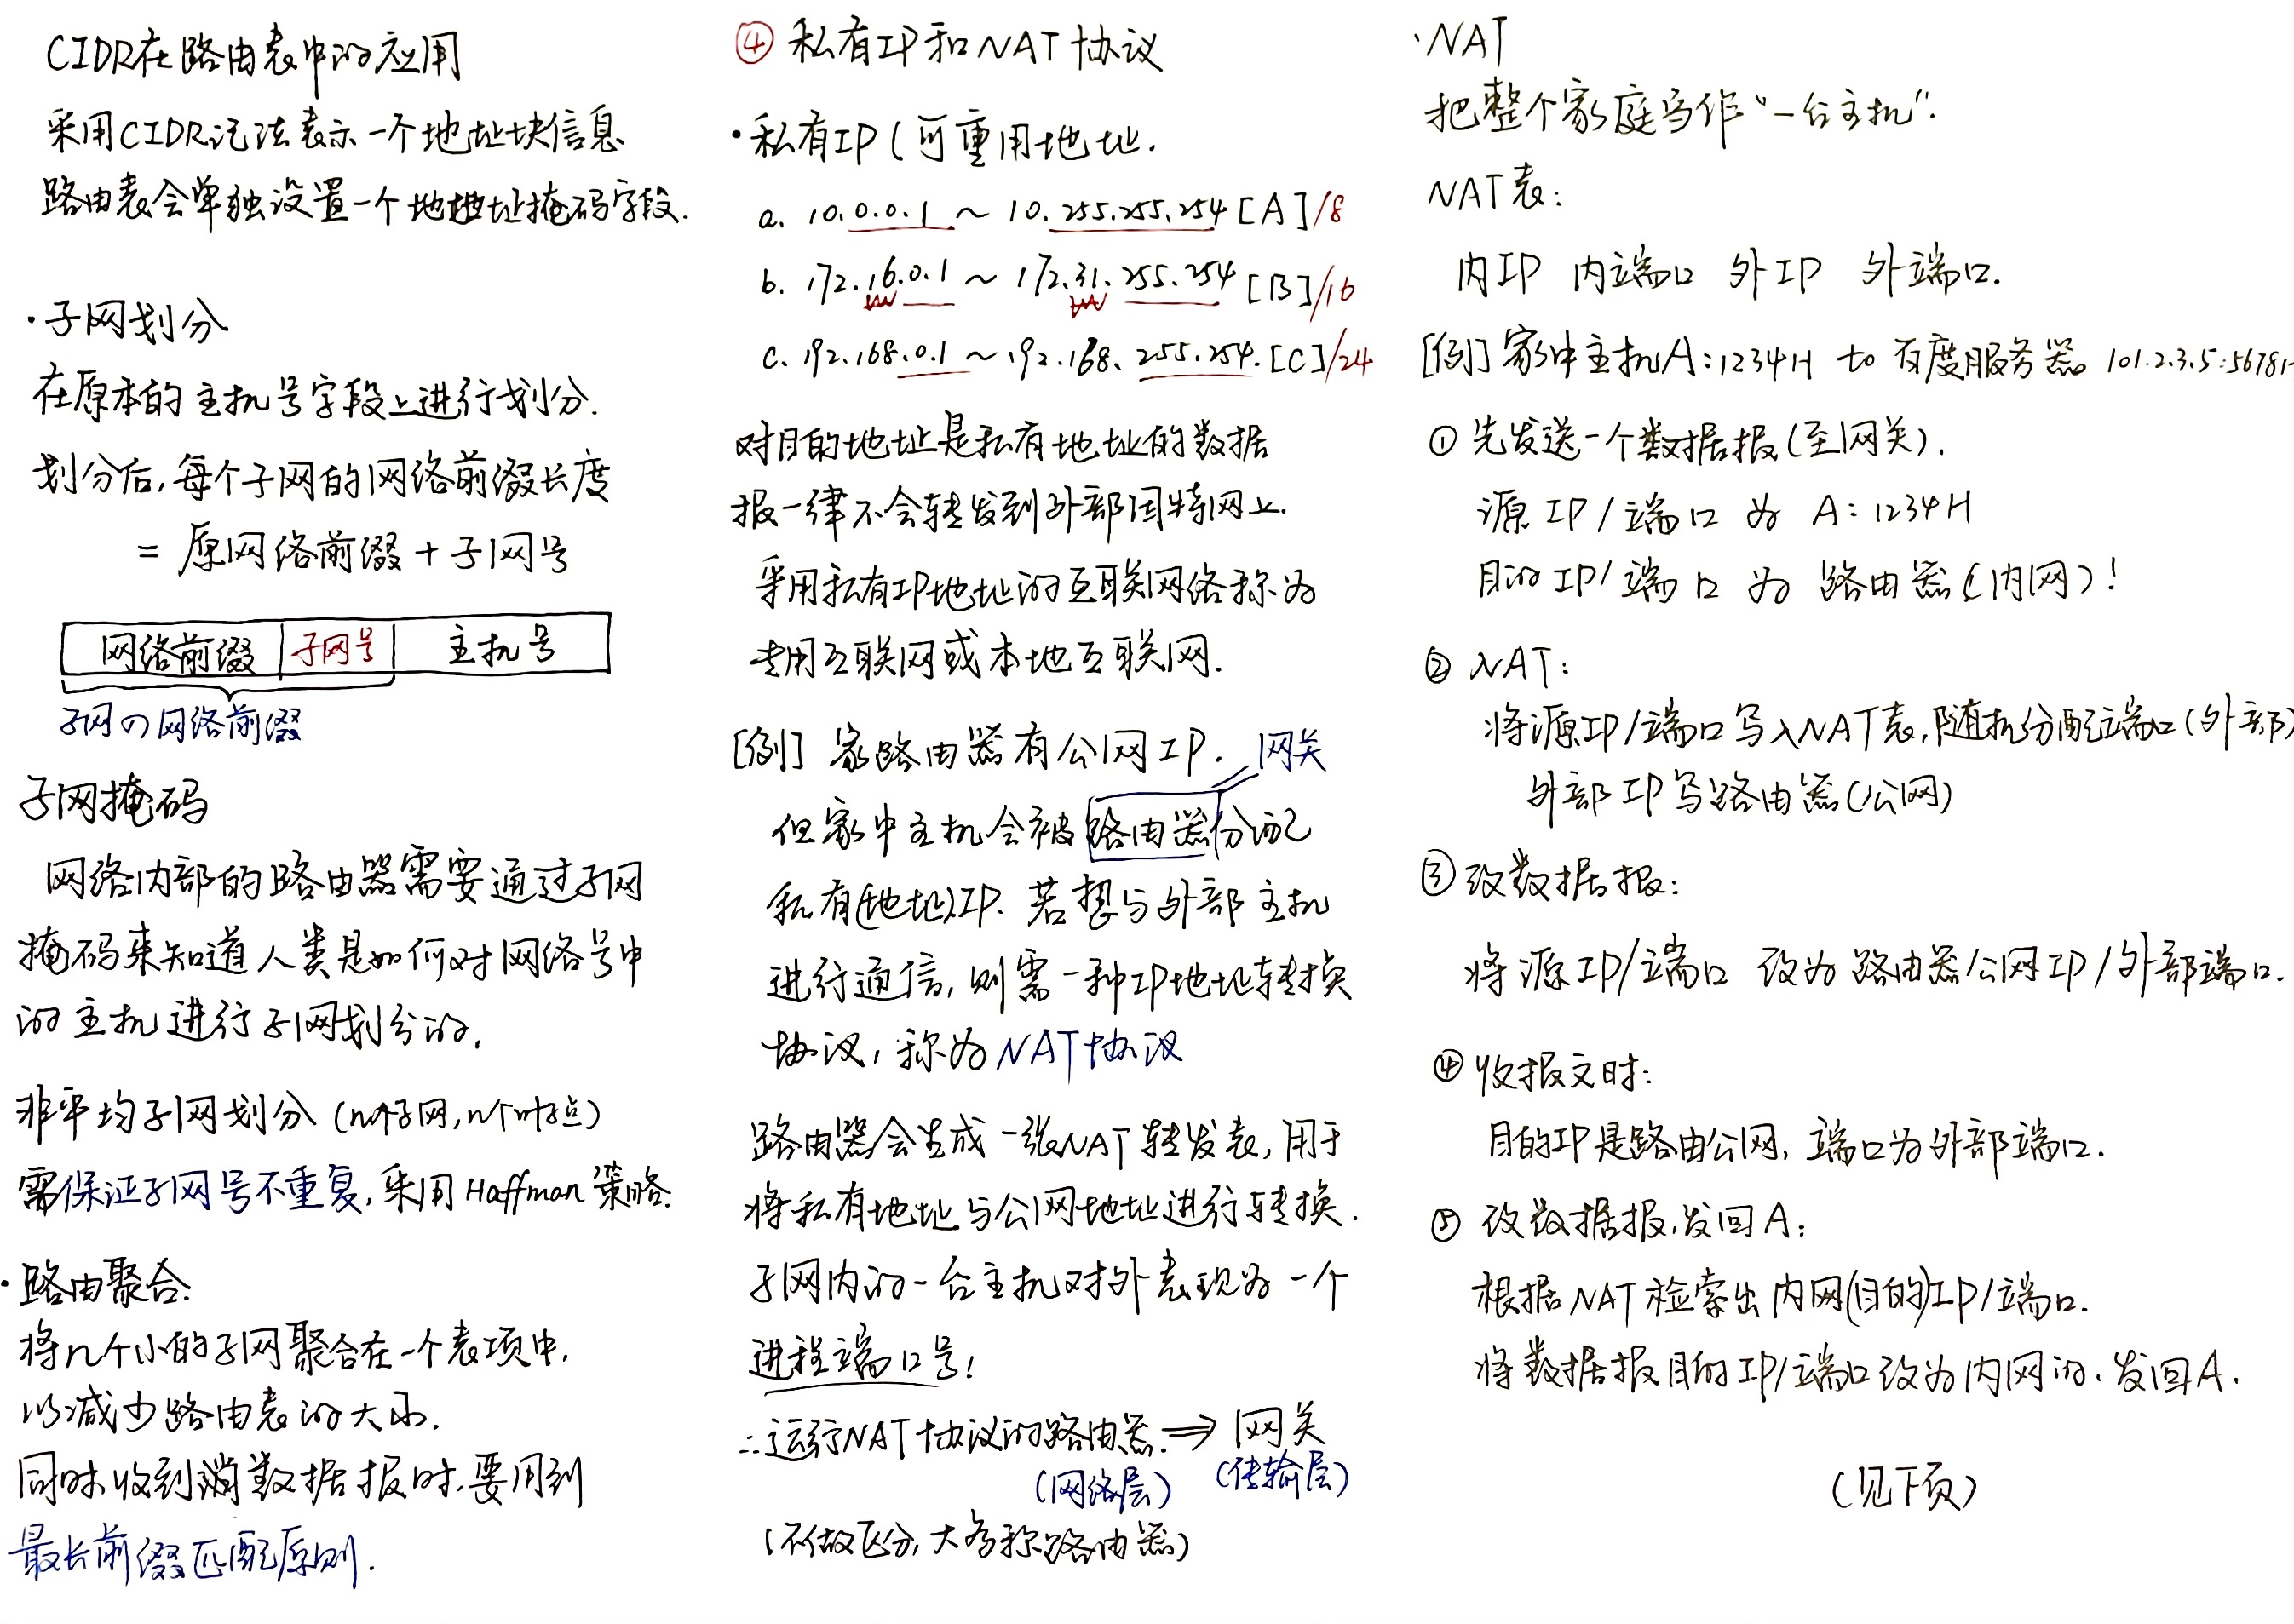 CIDR在路由表中的应用
采用CIDR记法表示一个地址块信息
路由表会单独设置一个地址掩码字段.
·子网划分
在原本的主机号字段上进行划分.
划分后,每个子网的网络前缀长度
= 原网络前缀+子网号
网络前缀 子网号 主机号
子网の网络前缀
子网掩码
网络内部的路由器需要通过子网
掩码来知道人类是如何对网络号中
的主机进行子网划分的.
非平均子网划分(n个子网,n个叶子点)
需保证子网号不重复,采用Haffman策略.
·路由聚合:
将几个小的子网聚合在一个表项中,
以减少路由表的大小.
同时收到数据报时,要用到
最长前缀匹配原则.
④ 私有IP和NAT协议
·私有IP(可重用地址.
a. 10.0.0.1 ~ 10.255.255.254 [A]/8
b. 172.16.0.1 ~ 172.31.255.254 [B]/16
c. 192.168.0.1 ~ 192.168.255.254.[C]/24
对目的地址是私有地址的数据
报一律不会转发到外部因特网上.
采用私有IP地址的互联网络称为
专用互联网或本地互联网.
[例] 家路由器有公网IP. 网关
但家中主机会被路由器分配
私有(地址)IP. 若想与外部主机
进行通信,则需一种IP地址转换
协议,称为NAT协议
路由器会生成一张NAT转发表,用于
将私有地址与公网地址进行转换.
子网内的一台主机对外表现为一个
进程端口号!
∴运行NAT协议的路由器. ⇒ 网关
(网络层) (传输层)
(不做区分,大多称路由器)
·NAT
把整个家庭当作"一台主机".
NAT表:
内IP 内端口 外IP 外端口.
[例]家中主机A:1234H to 百度服务器 101.2.3.5:5678H
① 先发送一个数据报(至网关).
源IP/端口 为 A:1234H
目的IP/端口 为 路由器(内网)!
② NAT:
将源IP/端口写入NAT表,随机分配端口(外部)
外部IP写路由器(公网)
③ 改数据报:
将源IP/端口 改为 路由器公网IP/外部端口.
④ 收报文时:
目的IP是路由公网,端口为外部端口.
⑤ 改数据报,发回A:
根据NAT检索出内网(目的)IP/端口.
将数据报目的IP/端口改为内网的.发回A.
(见下页)